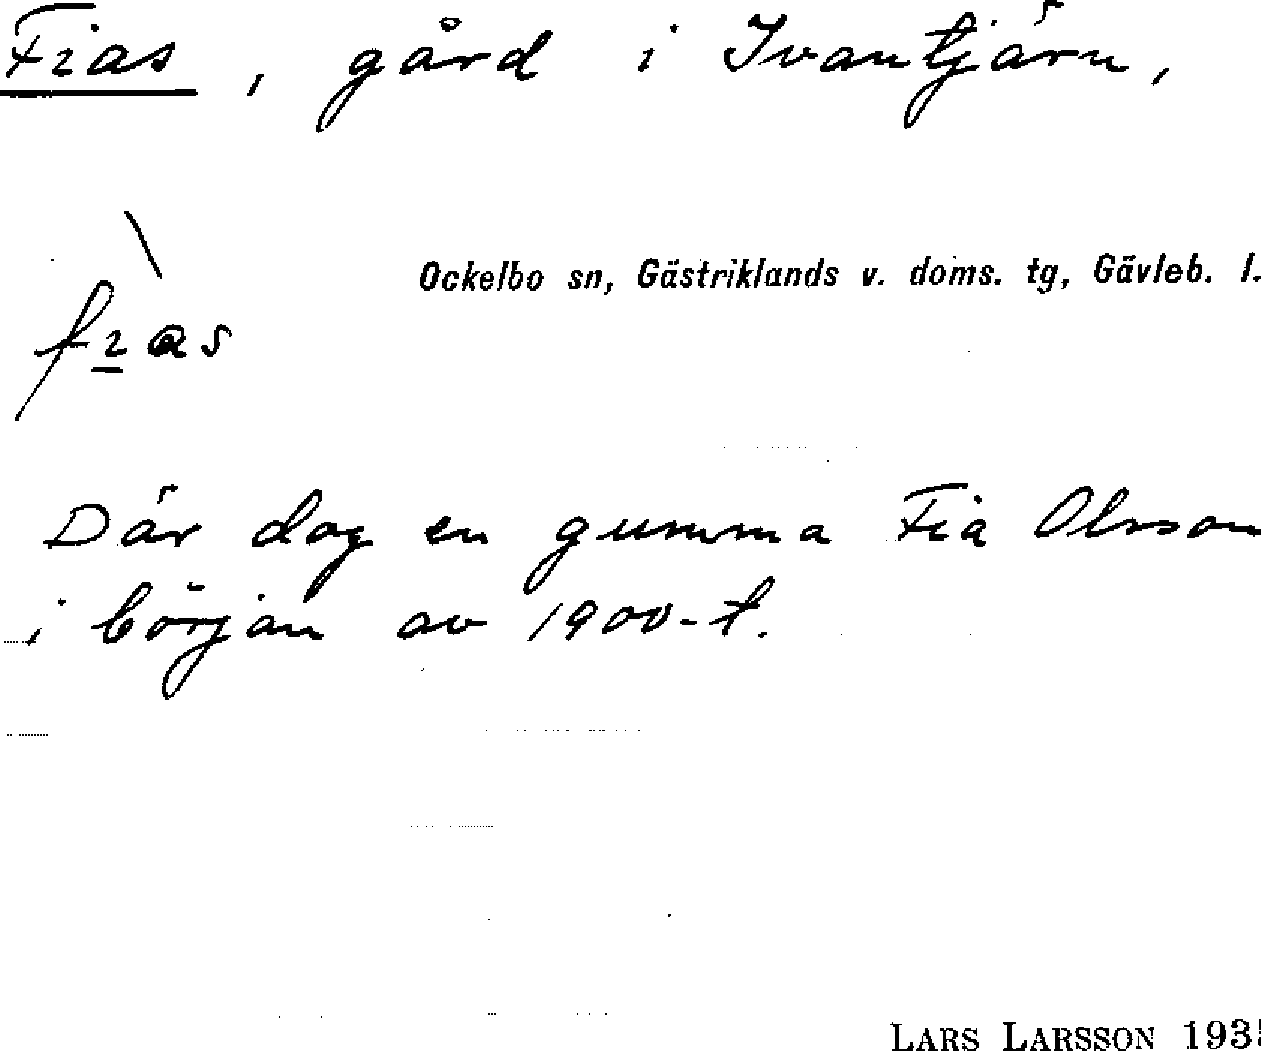 Fias, gård i Ivantjärn,
Ockelbo sn, Gästriklands v. doms. tg, Gävleb. l.
Där dog en gumma Fia Olsson
i början av 1900-t.
LARS LARSSON 1935